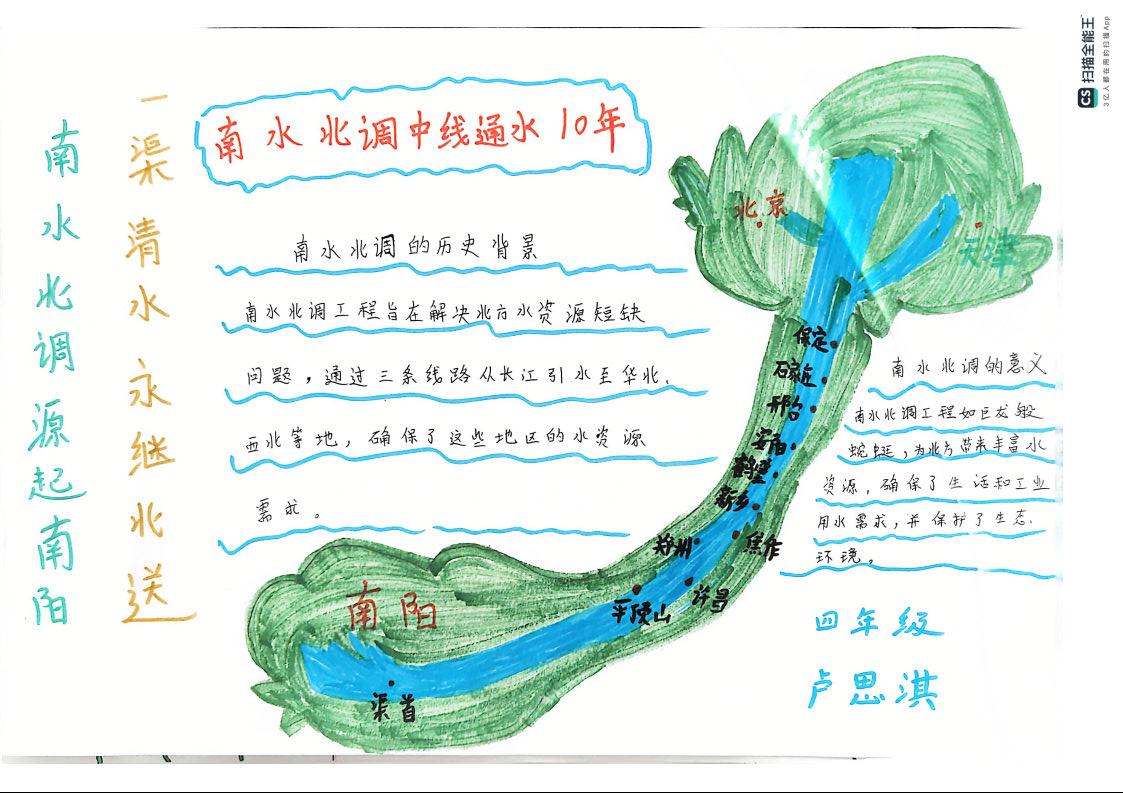 南水北调源起南阳
一渠清水永继北送
南水北调中线通水10年
南水北调的历史背景
南水北调工程旨在解决北方水资源短缺
问题，通过三条线路从长江引水至华北、
西北等地，确保了这些地区的水资源
需求。
北京
天津
保定
石家庄
邢台
安阳
鹤壁
新乡
焦作
郑州
许昌
平顶山
南阳
渠首
南水北调的意义
南水北调工程如巨龙般
蜿蜒，为北方带来丰富水
资源，确保了生活和工业
用水需求，并保护了生态、
环境。
四年级
卢思淇
CS 扫描全能王
3亿人都在用的扫描App